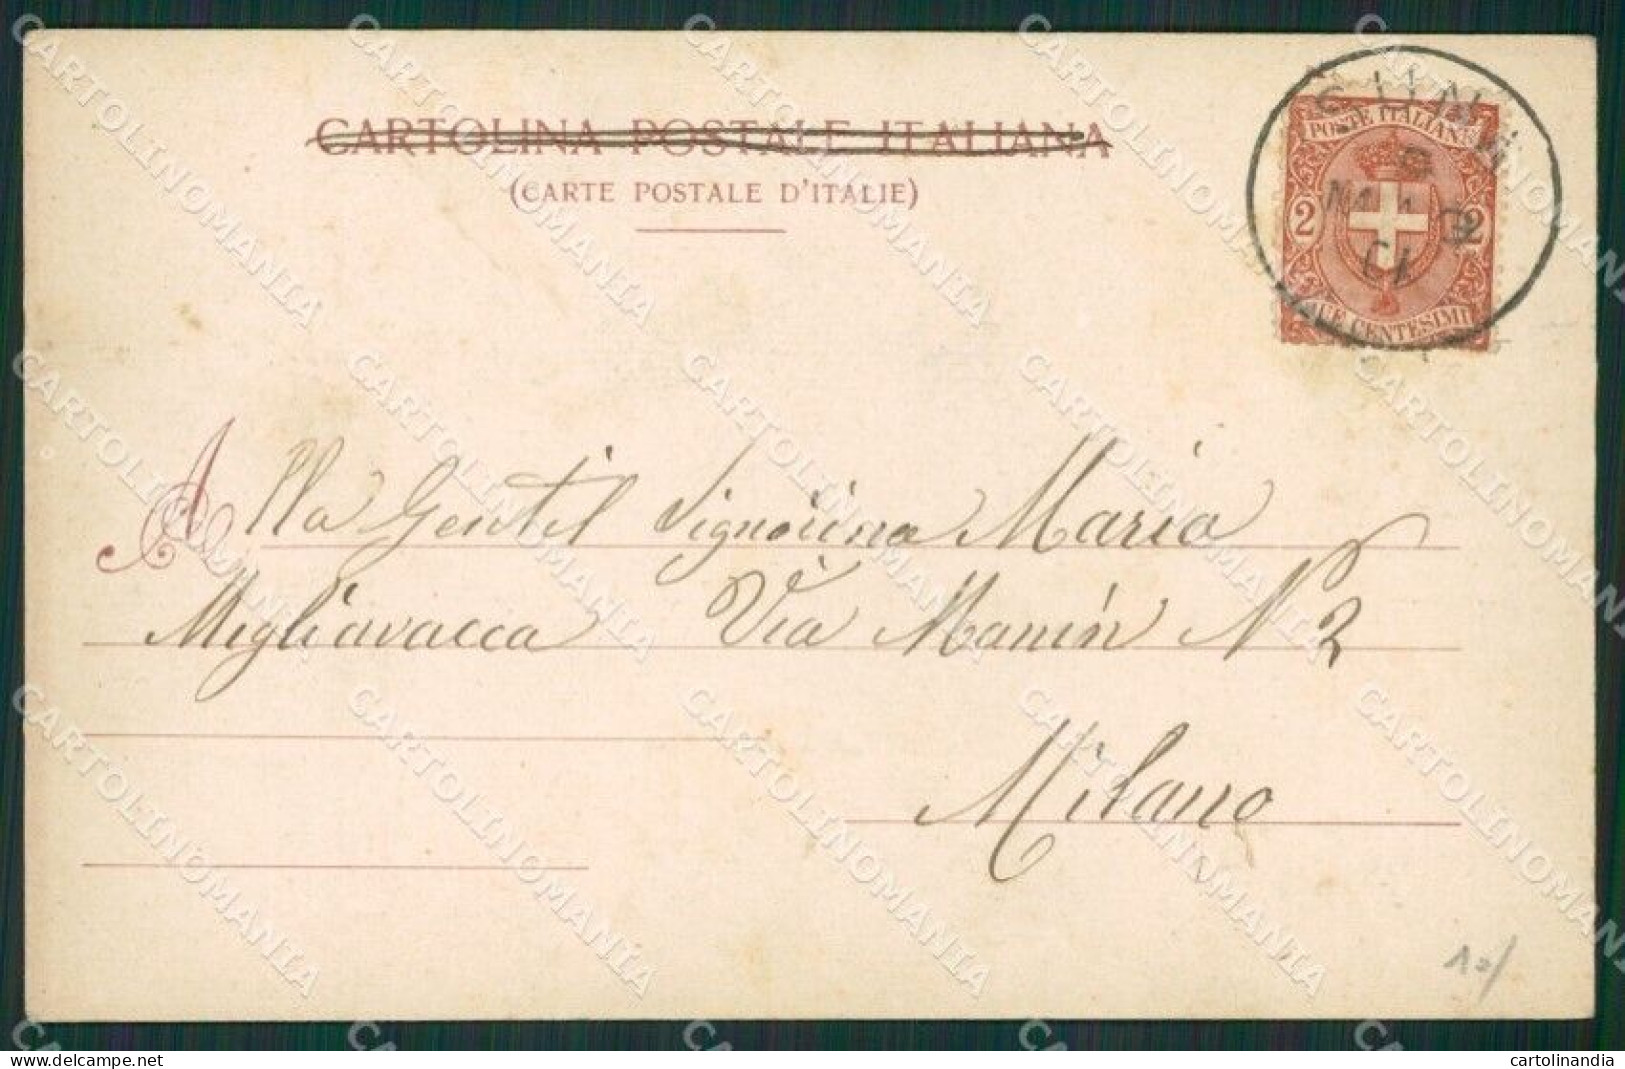 CARTOLINA POSTALE ITALIANA
(CARTE POSTALE D'ITALIE)
POSTE ITALIANE
2 2
DUE CENTESIMI
Alla Gentil Signorina Maria
Migliavacca Via Manin N 2
Milano
CARTOLINOMANIA
delcampe.net
cartolinandia